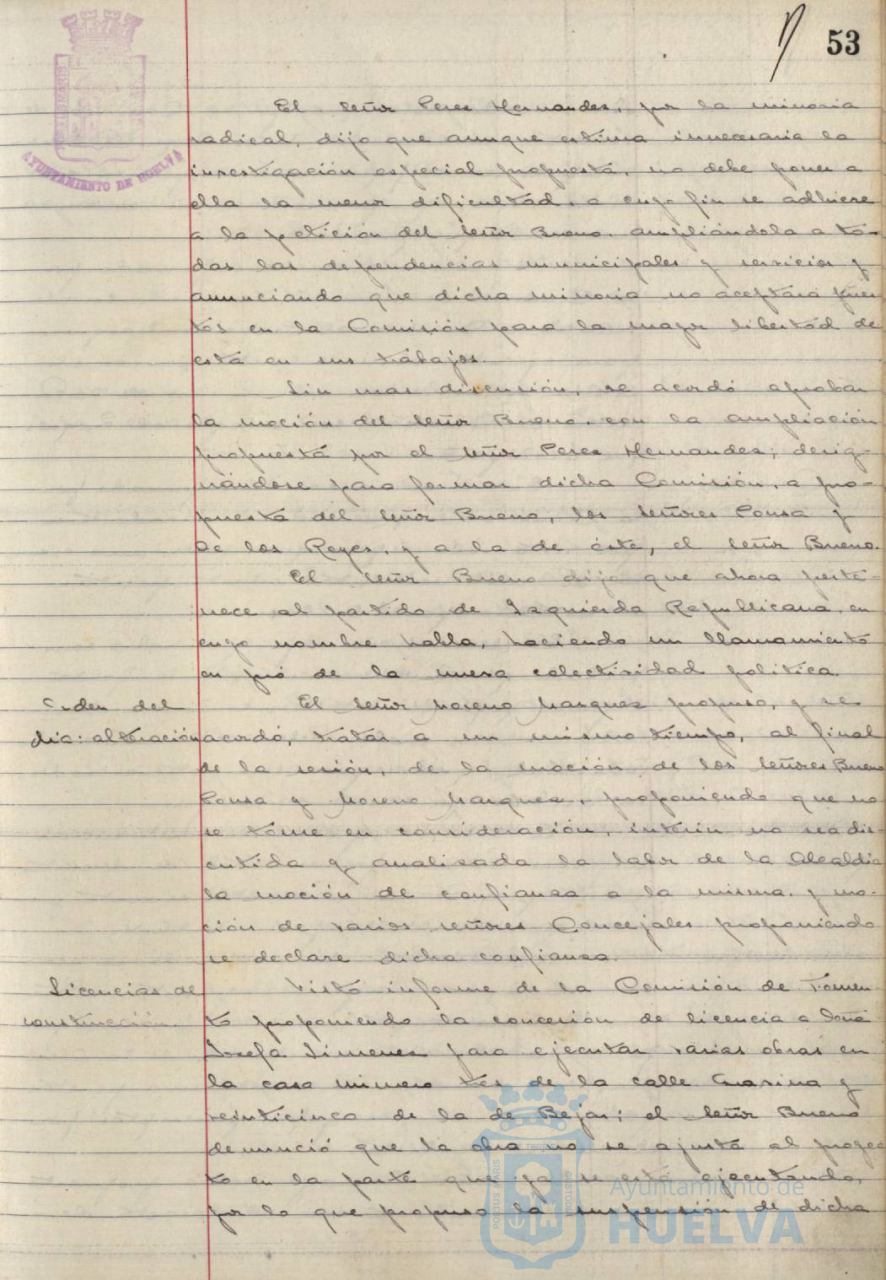 53
AYUNTAMIENTO DE HUELVA
El señor Perez Hernandez, por la minoria
radical, dijo que aunque estima innecesaria la
investigación especial propuesta, no debe poner a
ella la menor dificultad, a cuyo fin se adhiere
a la petición del señor Bueno, ampliándola a to-
das las dependencias municipales y servicios y
anunciando que dicha minoria no aceptará pues-
tos en la Comisión para la mayor libertad de
esta en sus trabajos.
Sin mas discusión, se acordó aprobar
la moción del señor Bueno, con la ampliación
propuesta por el señor Perez Hernandez; desig-
nándose para formar dicha Comisión, a pro-
puesta del señor Bueno, los señores Ponsa y
De los Reyes, y a la de éste, el señor Bueno.
El señor Bueno dijo que ahora perte-
nece al partido de Izquierda Republicana, en
cuyo nombre habla, haciendo un llamamiento
en pró de la nueva colectividad politica.
Orden del
dia: alteración
El señor Moreno Marquez propuso, y se
acordó, tratar a un mismo tiempo, al final
de la sesión, de la moción de los señores Bueno
Ponsa y Moreno Marquez, proponiendo que no
se tome en consideración, interin no sea dis-
cutida y analizada la labor de la Alcaldia
la moción de confianza a la misma, y mo-
ción de varios señores Concejales proponiendo
se declare dicha confianza.
Licencias de
construcción.
Visto informe de la Comisión de Fomen-
to proponiendo la concesión de licencia a Doña
Josefa Jimenez para ejecutar varias obras en
la casa número tres de la calle Marina y
veinticinco de la de Bejar; el señor Bueno
denunció que la obra no se ajusta al proyec-
to en la parte que ya se está ejecutando,
por lo que propuso la suspensión de dicha
Ayuntamiento de
HUELVA